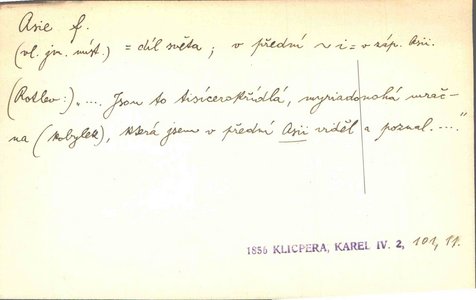 Asie f.
(vl. jm. míst.) = díl světa; v přední ~ i = v záp. Asii.
(Rozlev:) „.... Jsou to tisícerokřídlá, myriadonohá mrač-
na (kobylek), která jsem v přední Asii viděl a poznal....“
1856 KLICPERA, KAREL IV. 2, 101, 11.